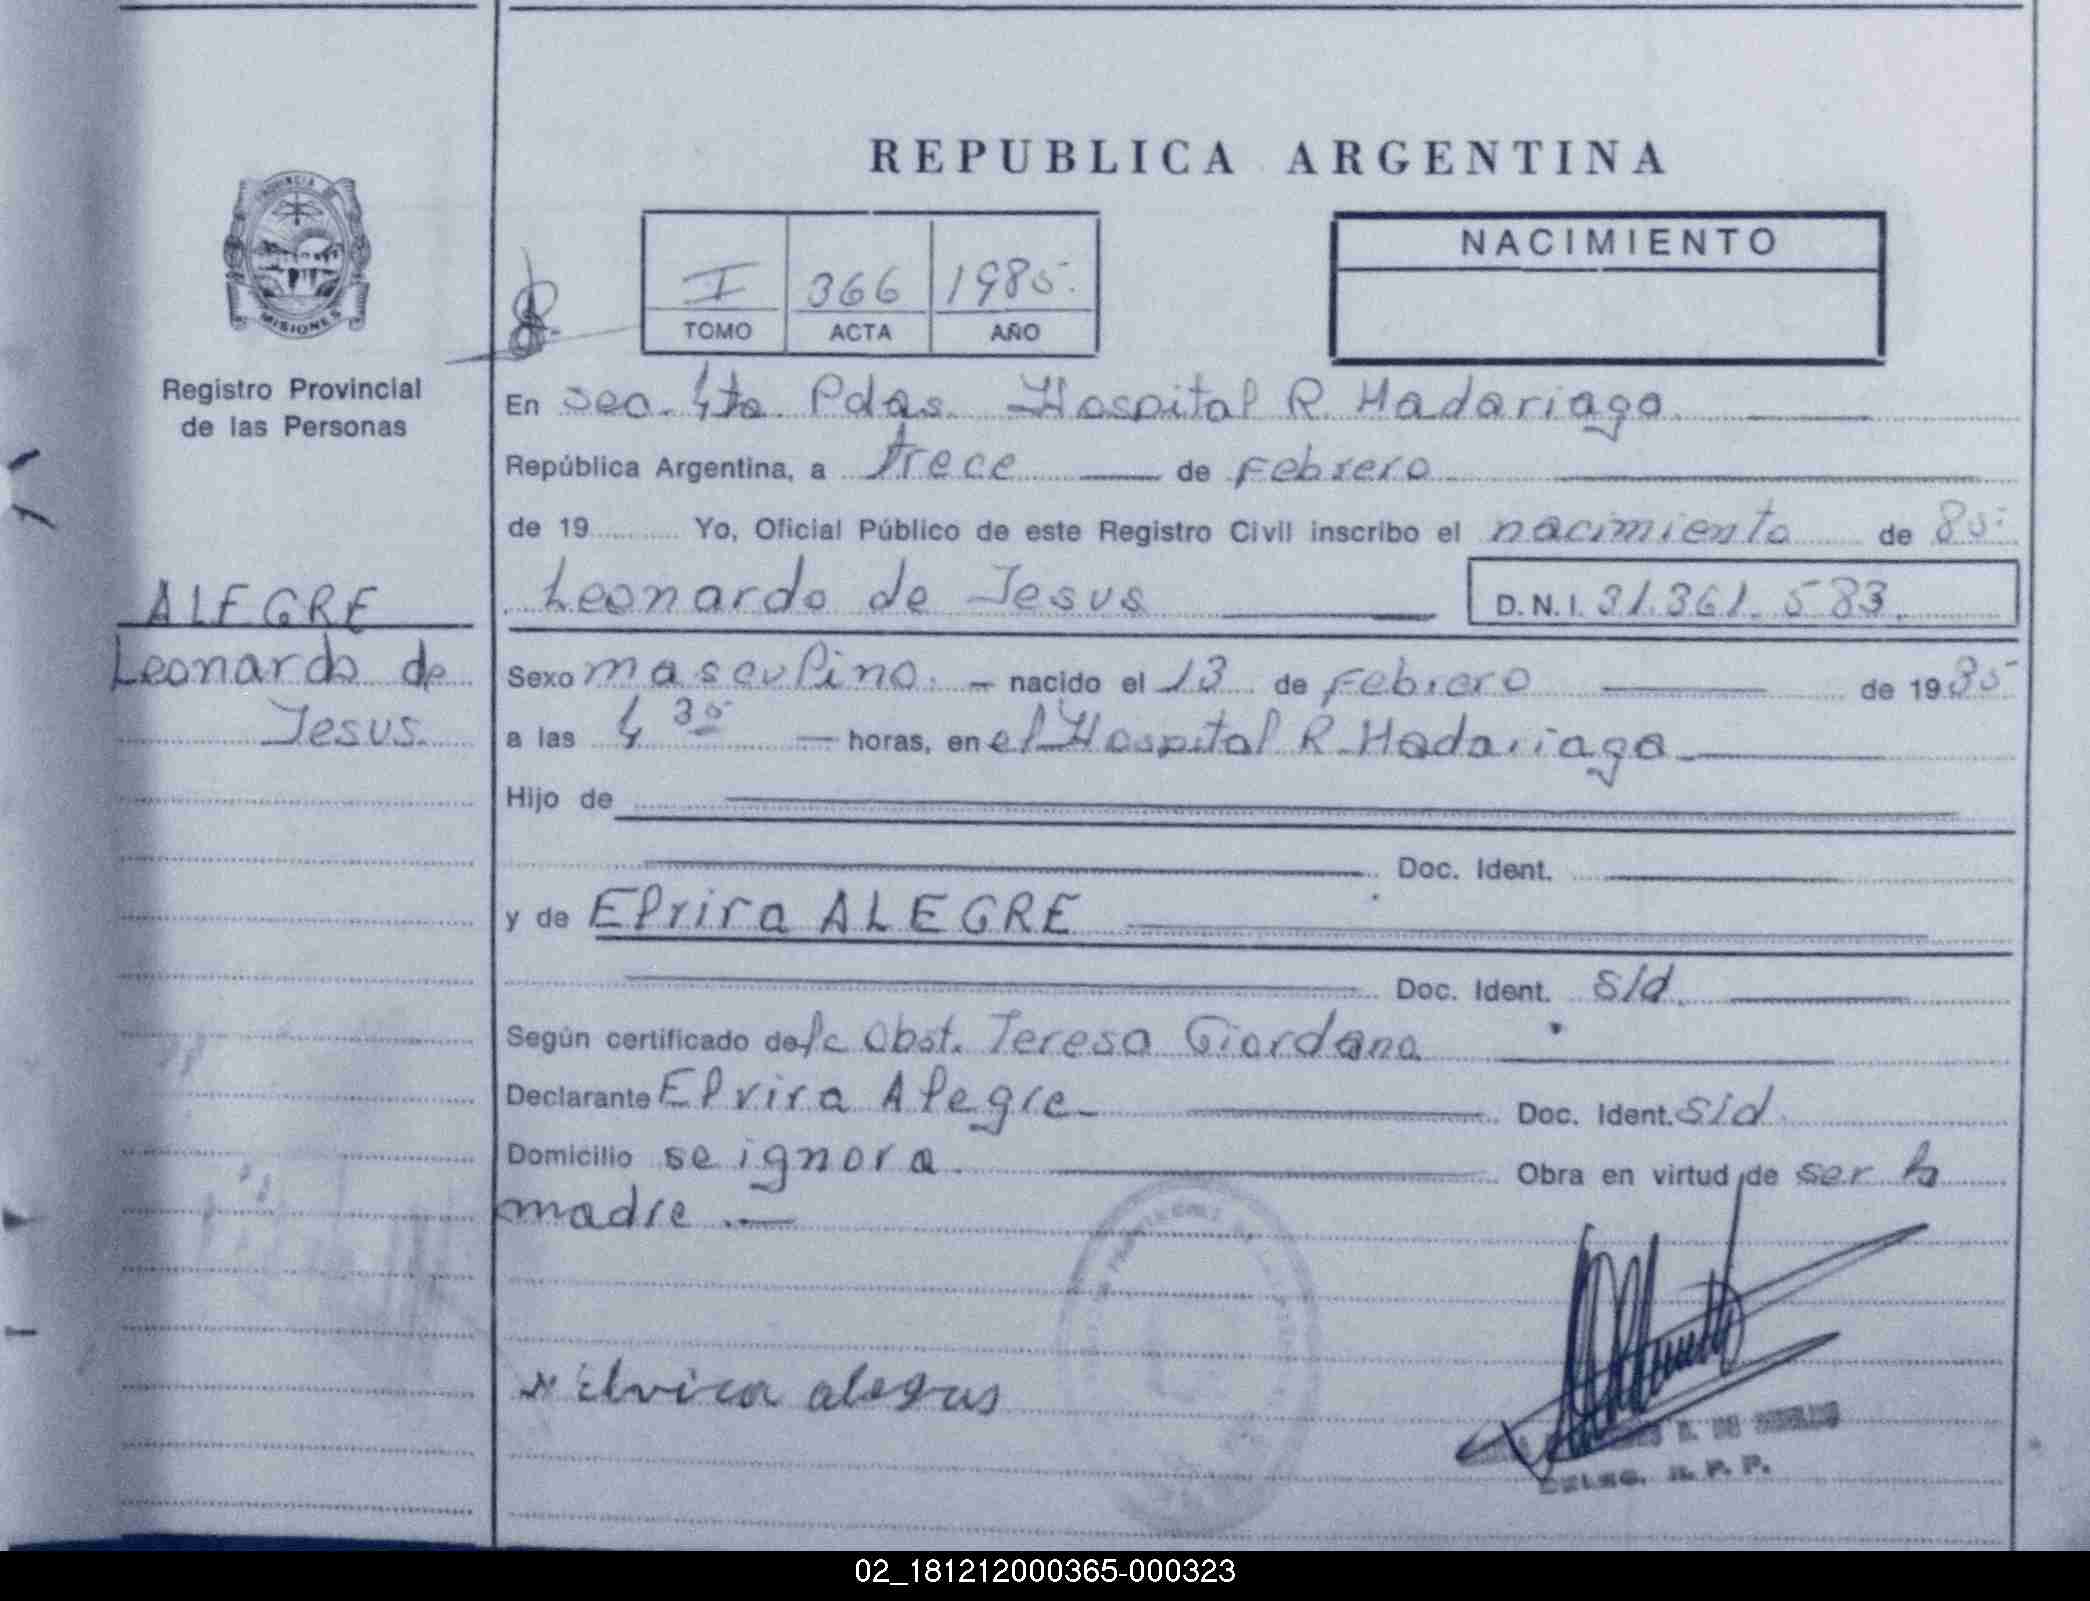 REPUBLICA ARGENTINA
PROVINCIA DE
MISIONES
Registro Provincial
de las Personas
I 366 1985.
TOMO ACTA AÑO
NACIMIENTO
En sec. 4ta. Pdas. Hospital R. Madariaga
República Argentina, a trece de Febrero
de 19 Yo, Oficial Público de este Registro Civil inscribo el nacimiento de 85.
Leonardo de Jesus D.N.I. 31.361.583.
ALEGRE
Leonardo de
Jesus.
Sexo masculino. nacido el 13 de Febrero de 1985
a las 4 35 horas, en el Hospital R. Madariaga
Hijo de
Doc. Ident.
y de Elvira ALEGRE
Doc. Ident. s/d.
Según certificado de la Obst. Teresa Giordano
Declarante Elvira Alegre Doc. Ident. s/d.
Domicilio se ignora. Obra en virtud de ser la
madre.
Elvira alegres
DELEG. R. P. P.
02_181212000365-000323